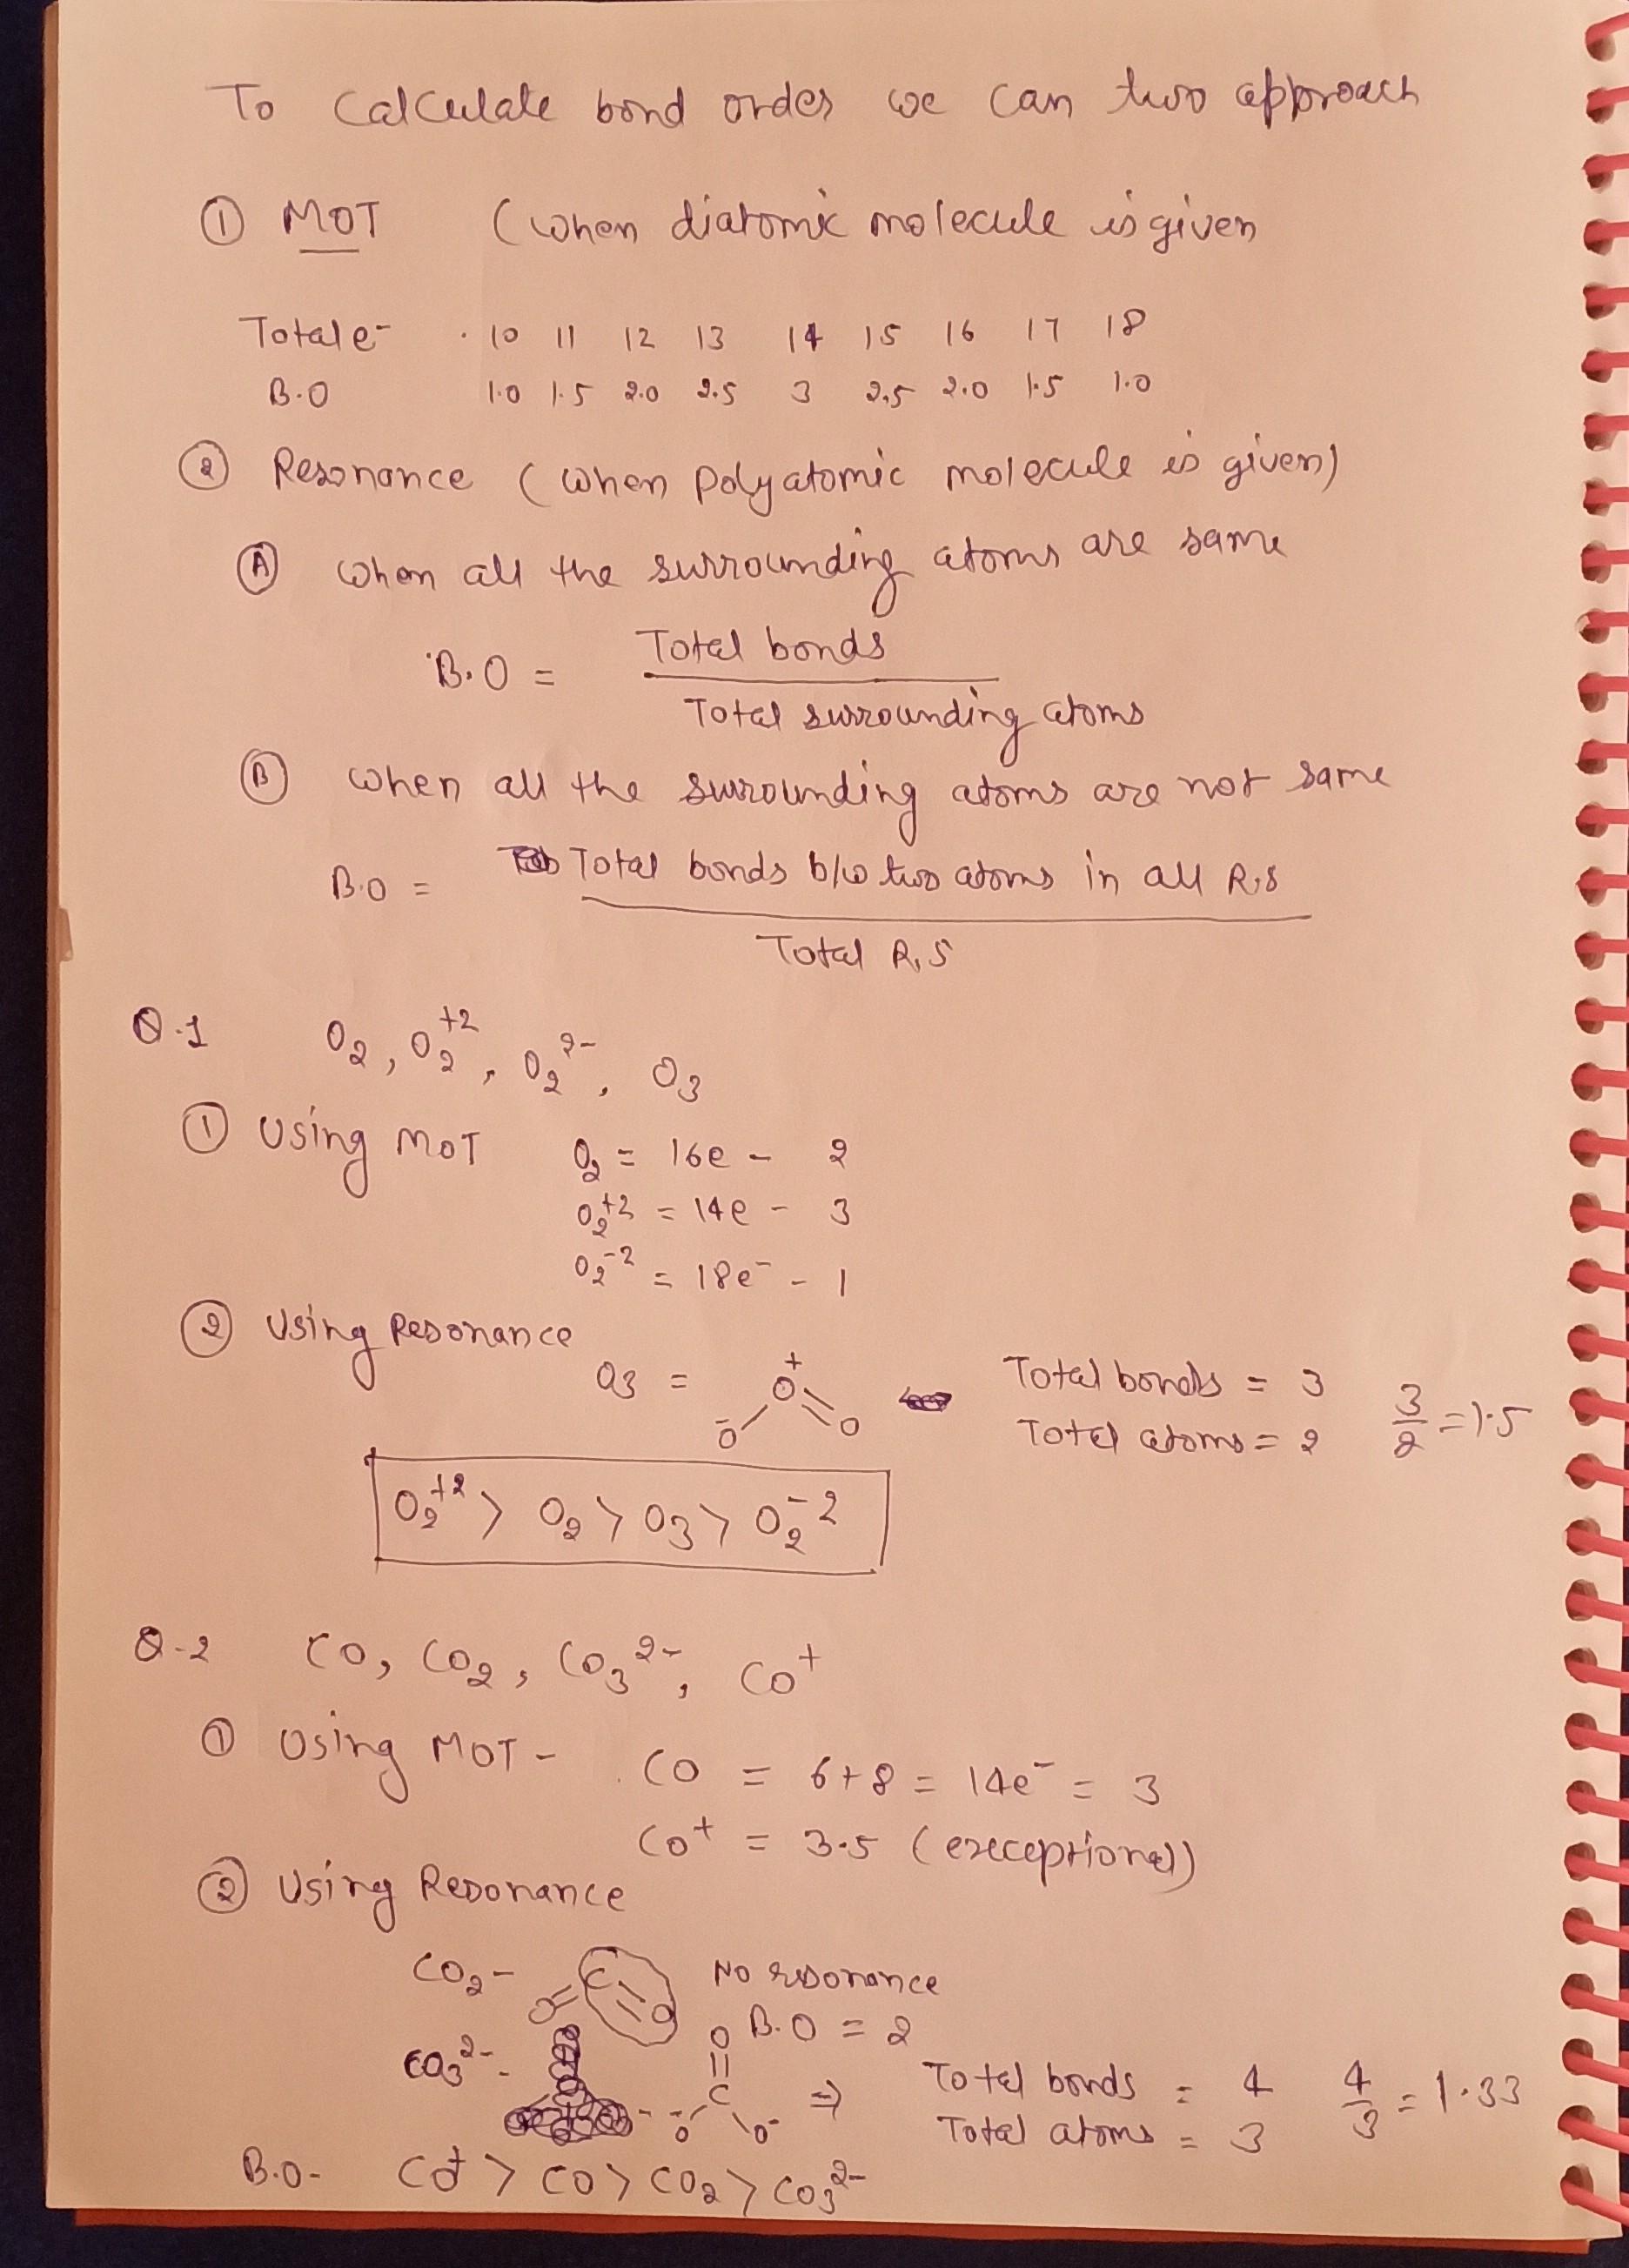 To Calculate bond order we can two approach
① MOT (when diatomic molecule is given
Total e- . 10 11 12 13 14 15 16 17 18
B.O 1.0 1.5 2.0 2.5 3 2.5 2.0 1.5 1.0
② Resonance (when polyatomic molecule is given)
Ⓐ when all the surrounding atoms are same
B.O = Total bonds
Total surrounding atoms
Ⓑ when all the surrounding atoms are not same
B.O = Total bonds b/w two atoms in all R.S
Total R.S
Q.1 O₂, O₂⁺², O₂²⁻, O₃
① Using MOT O₂ = 16e - 2
O₂⁺² = 14e - 3
O₂⁻² = 18e⁻ - 1
② Using Resonance
O₃ = O⁻ - O⁺ = O Total bonds = 3
Total atoms = 2 3/2 = 1.5
O₂⁺² > O₂ > O₃ > O₂⁻²
Q-2 CO, CO₂, CO₃²⁻, CO⁺
① Using MOT - CO = 6+8 = 14e⁻ = 3
CO⁺ = 3.5 (execeptional)
② Using Resonance
CO₂ - O=C=O No resonance
B.O = 2
CO₃²⁻ - O
C ⇒ Total bonds = 4 4/3 = 1.33
O⁻ O⁻ Total atoms = 3
B.O - CO⁺ > CO > CO₂ > CO₃²⁻